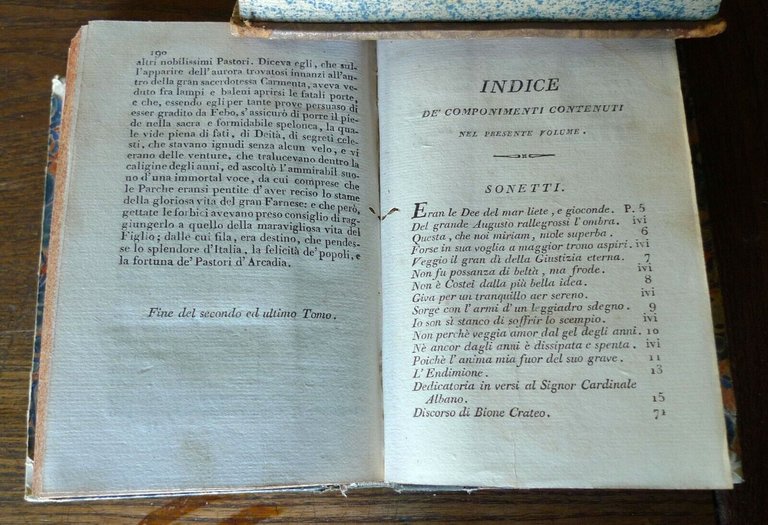 190
altri nobilissimi Pastori. Diceva egli, che sul-
l'apparire dell'aurora trovatosi innanzi all'an-
tro della gran sacerdotessa Carmenta, aveva ve-
duto fra lampi e baleni aprirsi le fatali porte,
e che, essendo egli per tante prove persuaso di
esser gradito da Febo, s'assicurò di porre il pie-
de nella sacra e formidabile spelonca, la qua-
le vide piena di fati, di Deità, di segreti cele-
sti, che stavano ignudi senza alcun velo, e vi
erano delle venture, che tralucevano dentro la
caligine degli anni, ed ascoltò l'ammirabil suo-
no d'una immortal voce, da cui comprese che
le Parche eransi pentite d'aver reciso lo stame
della gloriosa vita del gran Farnese: e che però,
gettate le forbici avevano preso consiglio di rag-
giungerlo a quello della maravigliosa vita del
Figlio; dalle cui fila, era destino, che pendes-
se lo splendore d'Italia, la felicità de' popoli, e
la fortuna de' Pastori d'Arcadia.
Fine del secondo ed ultimo Tomo.
INDICE
DE' COMPONIMENTI CONTENUTI
NEL PRESENTE VOLUME.
SONETTI.
Eran le Dee del mar liete, e gioconde. P. 5
Del grande Augusto rallegrossi l'ombra. ivi
Questa, che noi miriam, mole superba. 6
Forse in sua voglia a maggior trono aspiri. ivi
Veggio il gran dì della Giustizia eterna. 7
Non fu possanza di beltà, ma frode. ivi
Non è Costei dalla più bella idea. 8
Giva per un tranquillo aer sereno. ivi
Sorge con l'armi d'un leggiadro sdegno. 9
Io son sì stanco di soffrir lo scempio. ivi
Non perchè veggia amor dal gel degli anni. 10
Nè ancor dagli anni è dissipata e spenta. ivi
Poichè l'anima mia fuor del suo grave. 11
L'Endimione. 13
Dedicatoria in versi al Signor Cardinale
Albano. 15
Discorso di Bione Crateo. 71